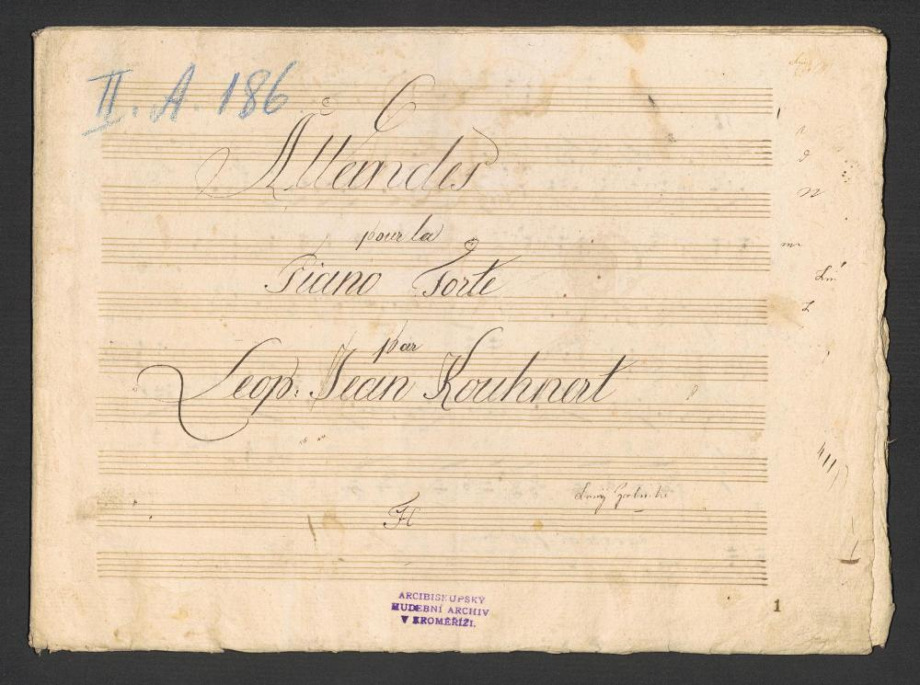 II. A. 186
6
Allandes
pour la
Piano Forte
par
Leop: Jean Kouhnert
ARCIBISKUPSKÝ
HUDEBNÍ ARCHIV
V KROMĚŘÍŽI.
1